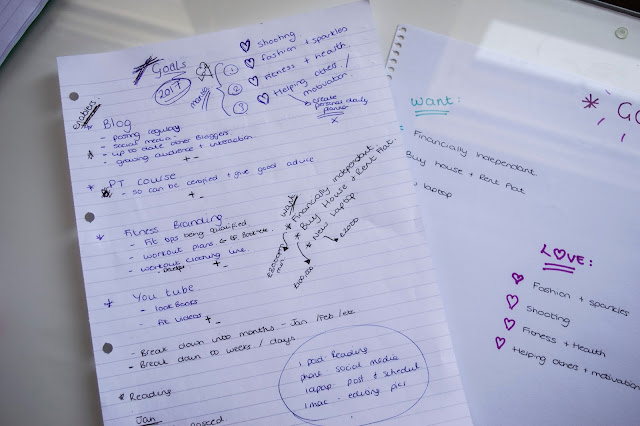 GOALS
2017
months
1
2
3
♡ Shooting
♡ Fashion + sparkles
♡ Fitness + health.
♡ Helping others /
motivation.
create
personal daily
planner
x
Enablers
* Blog
- posting regulary
- social media
- up to date other Bloggers
- growing audience + interaction
+ -
* PT course
- so can be certified + give good advice
+ -
* Fitness Branding
- Fit tips being qualified
- workout plans
- workout clothing line
+ -
want
* Financially independant
* Buy House + Rent Flat.
* New laptop
£2000
* You tube
- look Books
- Fit videos
+ -
- Break down into months - Jan / Feb / etc
- Break down to weeks / days
* Reading
Jan
ipad Reading
phone social media
laptop post + schedule
imac - editing pics
want:
Financially Independant
Buy House + Rent Flat
laptop
* GO
LOVE:
♡ Fashion + sparkles
♡ Shooting
♡ Fitness + Health
♡ Helping others + motivation